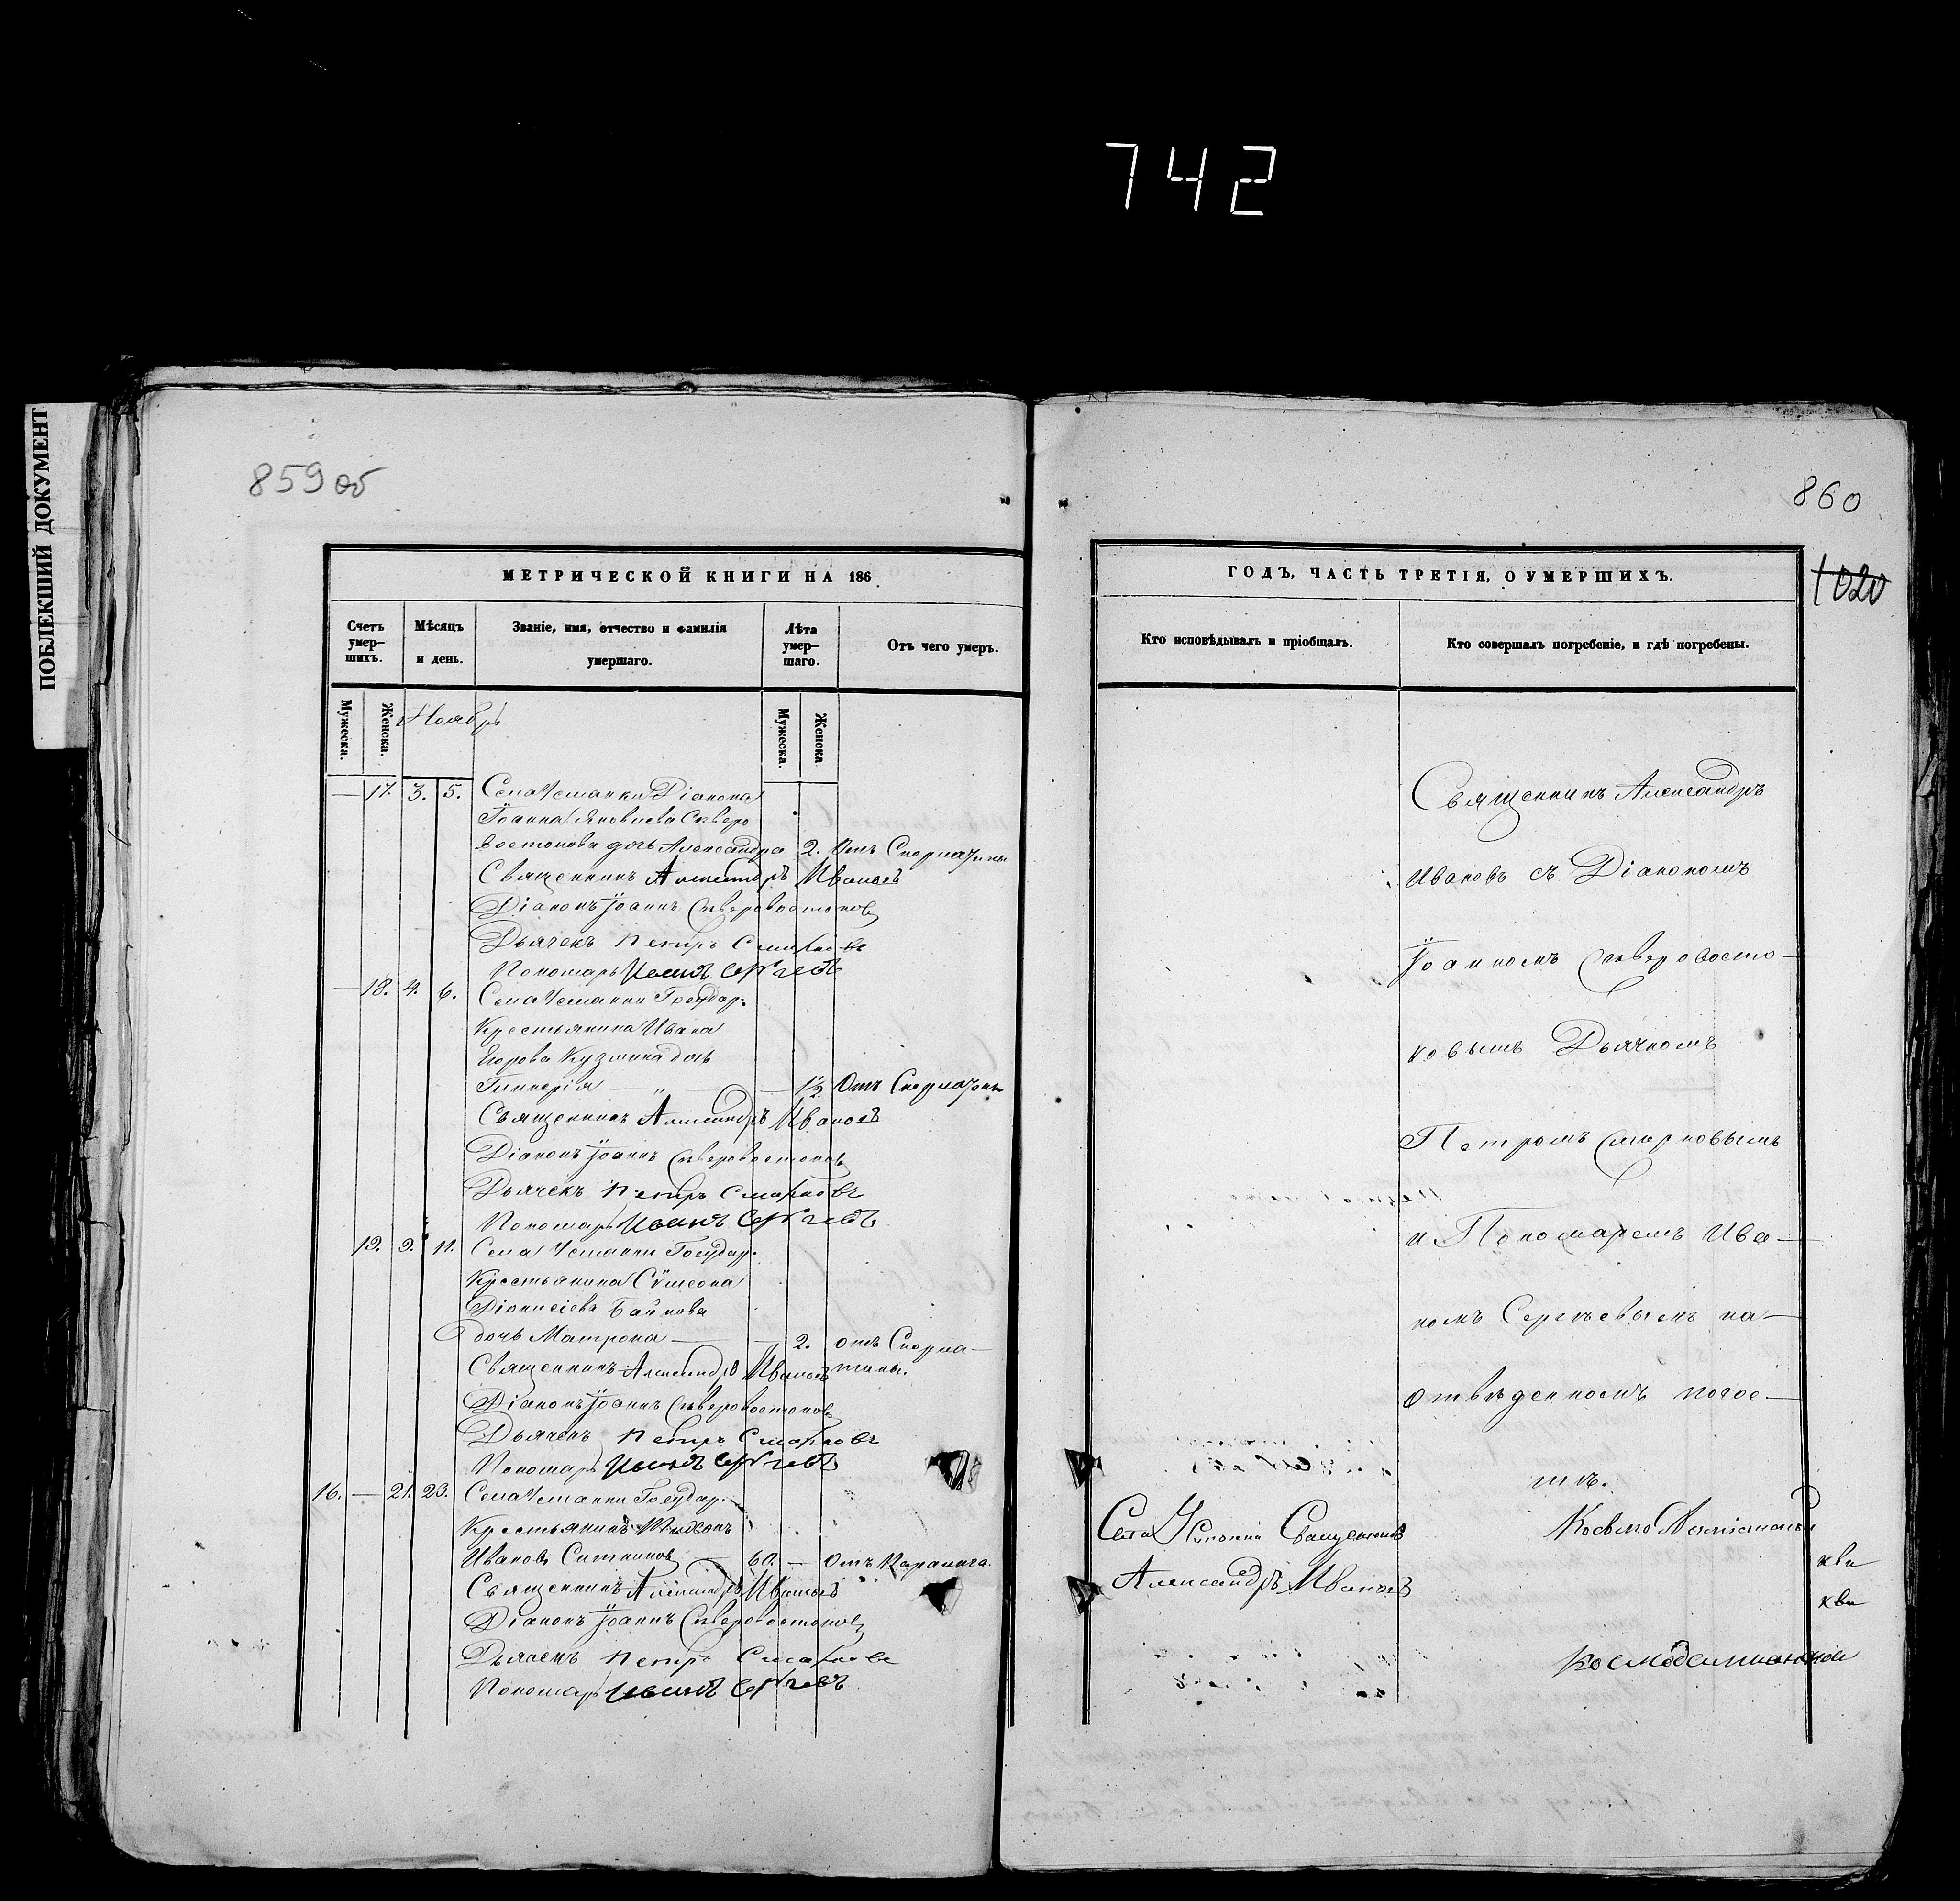 742
ПОБЛЕКШИЙ ДОКУМЕНТ
859об
МЕТРИЧЕСКОЙ КНИГИ НА 186
Счетъ умер-шихъ.
Мѣсяцъ и день.
Званіе, имя, отчество и фамилія умершаго.
Лѣта умер-шаго.
Отъ чего умеръ.
Мужеска.
Женска.
Ноябрь
Мужеска.
Женска
— 17. 3. 5. Села Діакона
Іоанна Яковлева Северо
востокова дочь Александра 2. Отъ Скорлатины
Священникъ Александръ Ивановъ
Діаконъ Іоаннъ Северовостоковъ
Дьячекъ Петръ Смирновъ
Пономарь Иванъ Сергѣевъ
— 18. 4. 6. Села Государ:
Крестьянина Ивана
Егорова Кузмина дочь
Гликерія — „ — 1½ Отъ Скорлатины
Священникъ Александръ Ивановъ
Діаконъ Іоаннъ Северовостоковъ
Дьячекъ Петръ Смирновъ
Пономарь Иванъ Сергѣевъ
19. 9. 11. Села Государ:
Крестьянина Сѵмеона
Діонисіева Байкова
дочь Матрона — — 2. отъ Скорла-
Священникъ Александръ Ивановъ тины.
Діаконъ Іоаннъ Северовостоковъ
Дьячекъ Петръ Смирновъ
Пономарь Иванъ Сергѣевъ
16. — 21. 23. Села Государ:
Крестьянинъ Тихонъ
Ивановъ Ситниковъ — 60. — Отъ Паралича.
Священникъ Александръ Ивановъ
Діаконъ Іоаннъ Северовостоковъ
Дьячекъ Петръ Смирновъ
Пономарь Иванъ Сергѣевъ
860
1020
ГОДЪ, ЧАСТЬ ТРЕТІЯ, О УМЕРШИХЪ.
Кто исповѣдывалъ и пріобщалъ.
Кто совершалъ погребеніе, и гдѣ погребены.
Священникъ Александръ
Ивановъ съ Діакономъ
Іоанномъ Северовосто-
ковымъ Дьячкомъ
Петромъ Смирновымъ
и Пономаремъ Ива-
номъ Сергѣевымъ на
отвѣденномъ погос-
тѣ.
Села Священникъ
Александръ Ивановъ